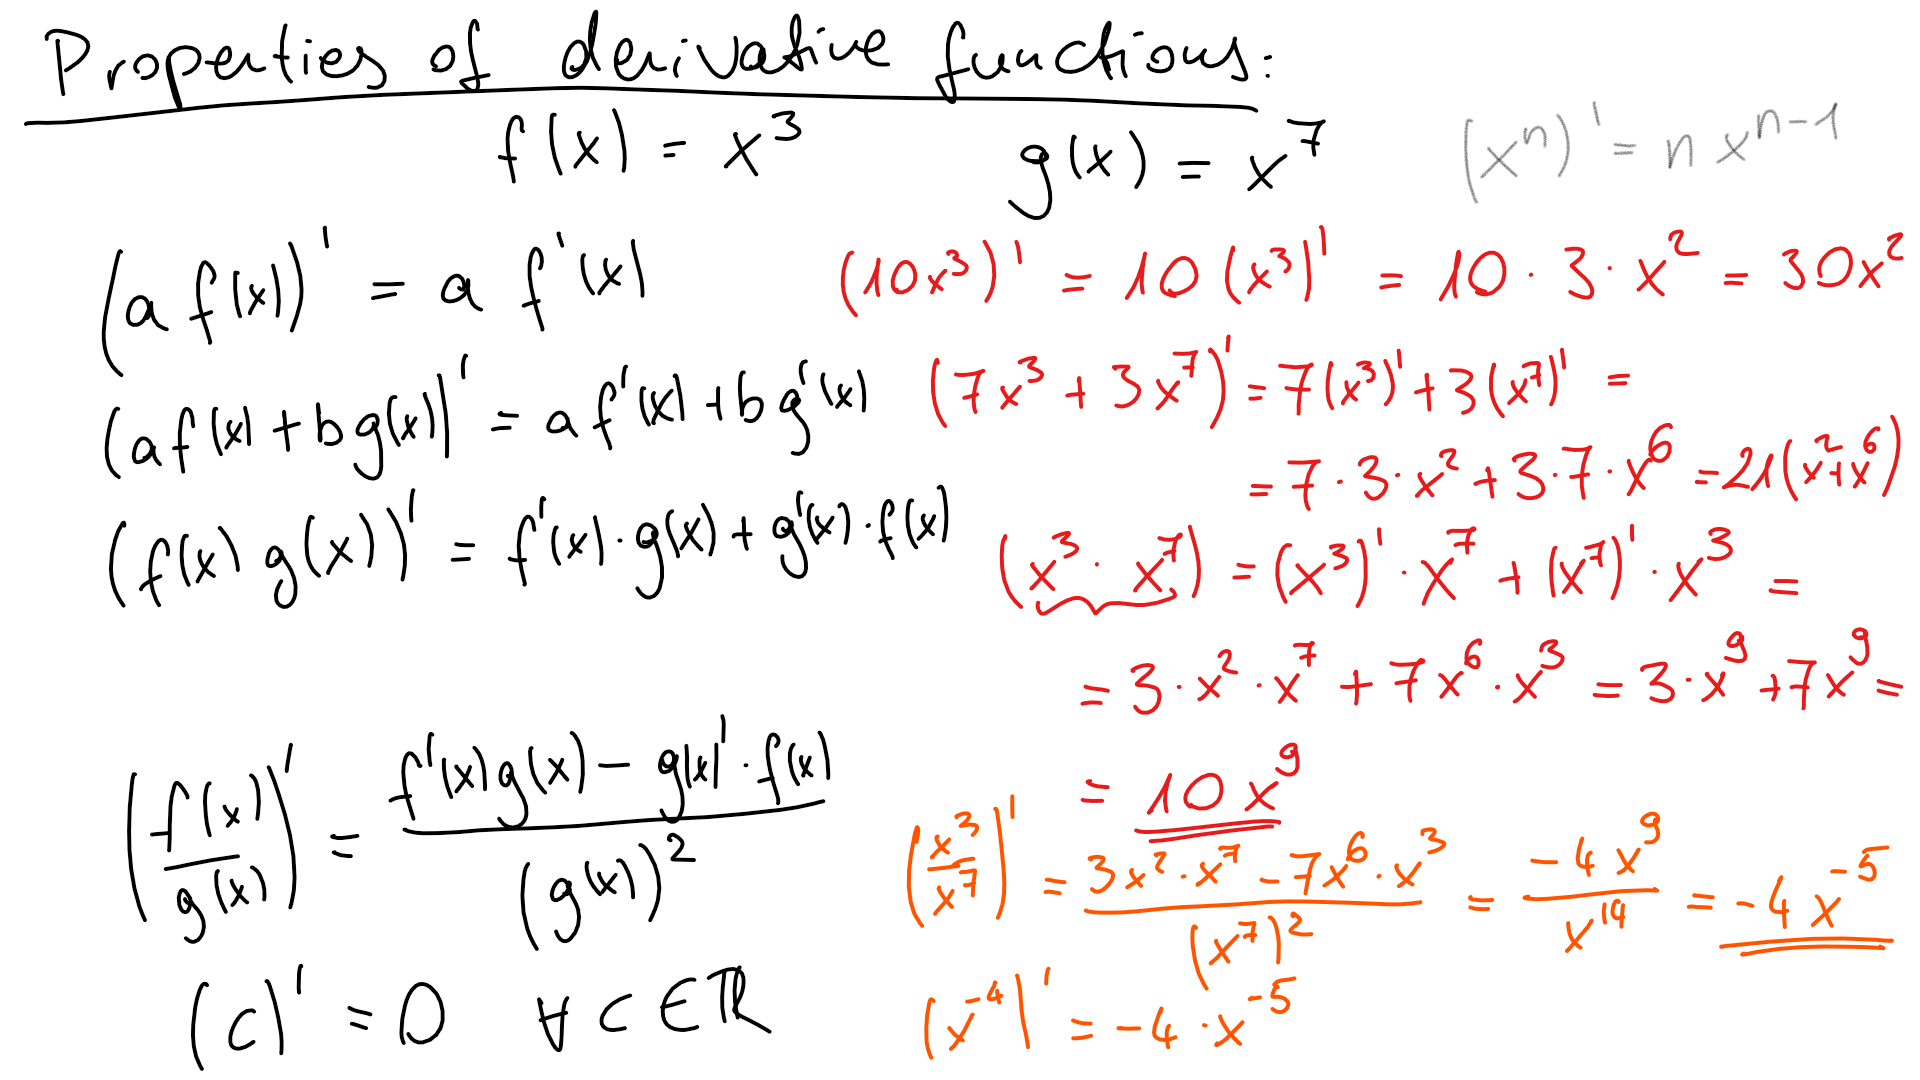 Properties of derivative functions:
f(x) = x³    g(x) = x⁷    (xⁿ)' = n xⁿ⁻¹
(a f(x))' = a f'(x)    (10x³)' = 10 (x³)' = 10 · 3 · x² = 30x²
(a f(x) + b g(x))' = a f'(x) + b g'(x)    (7x³ + 3x⁷)' = 7(x³)' + 3(x⁷)' =
= 7 · 3 · x² + 3 · 7 · x⁶ = 21(x² + x⁶)
(f(x) g(x))' = f'(x) · g(x) + g'(x) · f(x)    (x³ · x⁷) = (x³)' · x⁷ + (x⁷)' · x³ =
= 3 · x² · x⁷ + 7x⁶ · x³ = 3 · x⁹ + 7x⁹ =
= 10 x⁹
(f(x)/g(x))' = (f'(x)g(x) − g(x)' · f(x))/(g(x))²    (x³/x⁷)' = (3x² · x⁷ − 7x⁶ · x³)/(x⁷)² = −4x⁹/x¹⁴ = −4x⁻⁵
(c)' = 0 ∀ c ∈ ℝ    (x⁻⁴)' = −4 · x⁻⁵